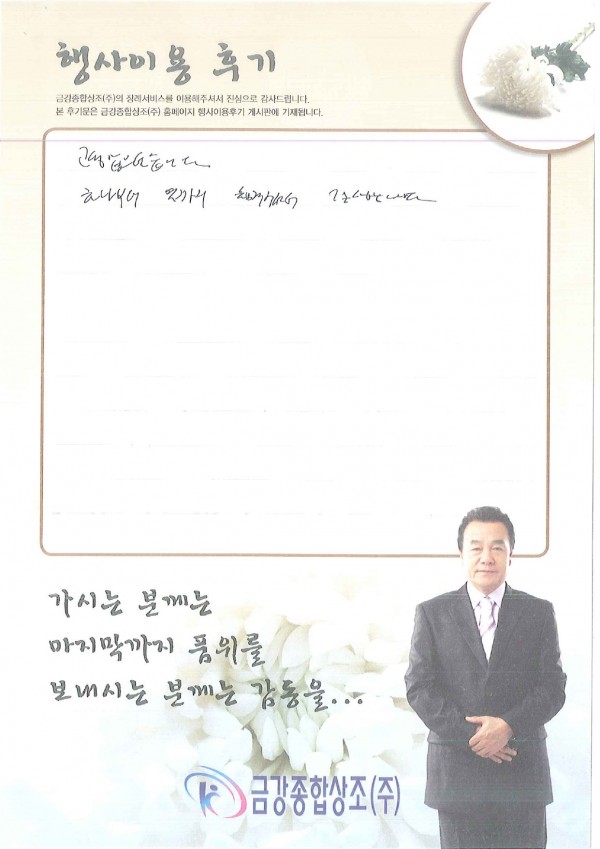 행사이용 후기
금강종합상조(주)의 장례서비스를 이용해주셔서 진심으로 감사드립니다.
본 후기문은 금강종합상조(주) 홈페이지 행사이용후기 게시판에 기재됩니다.
고생 많으셨습니다
하나부터 열까지 감사합니다
가시는 분께는
마지막까지 품위를
보내시는 분께는 감동을...
금강종합상조(주)